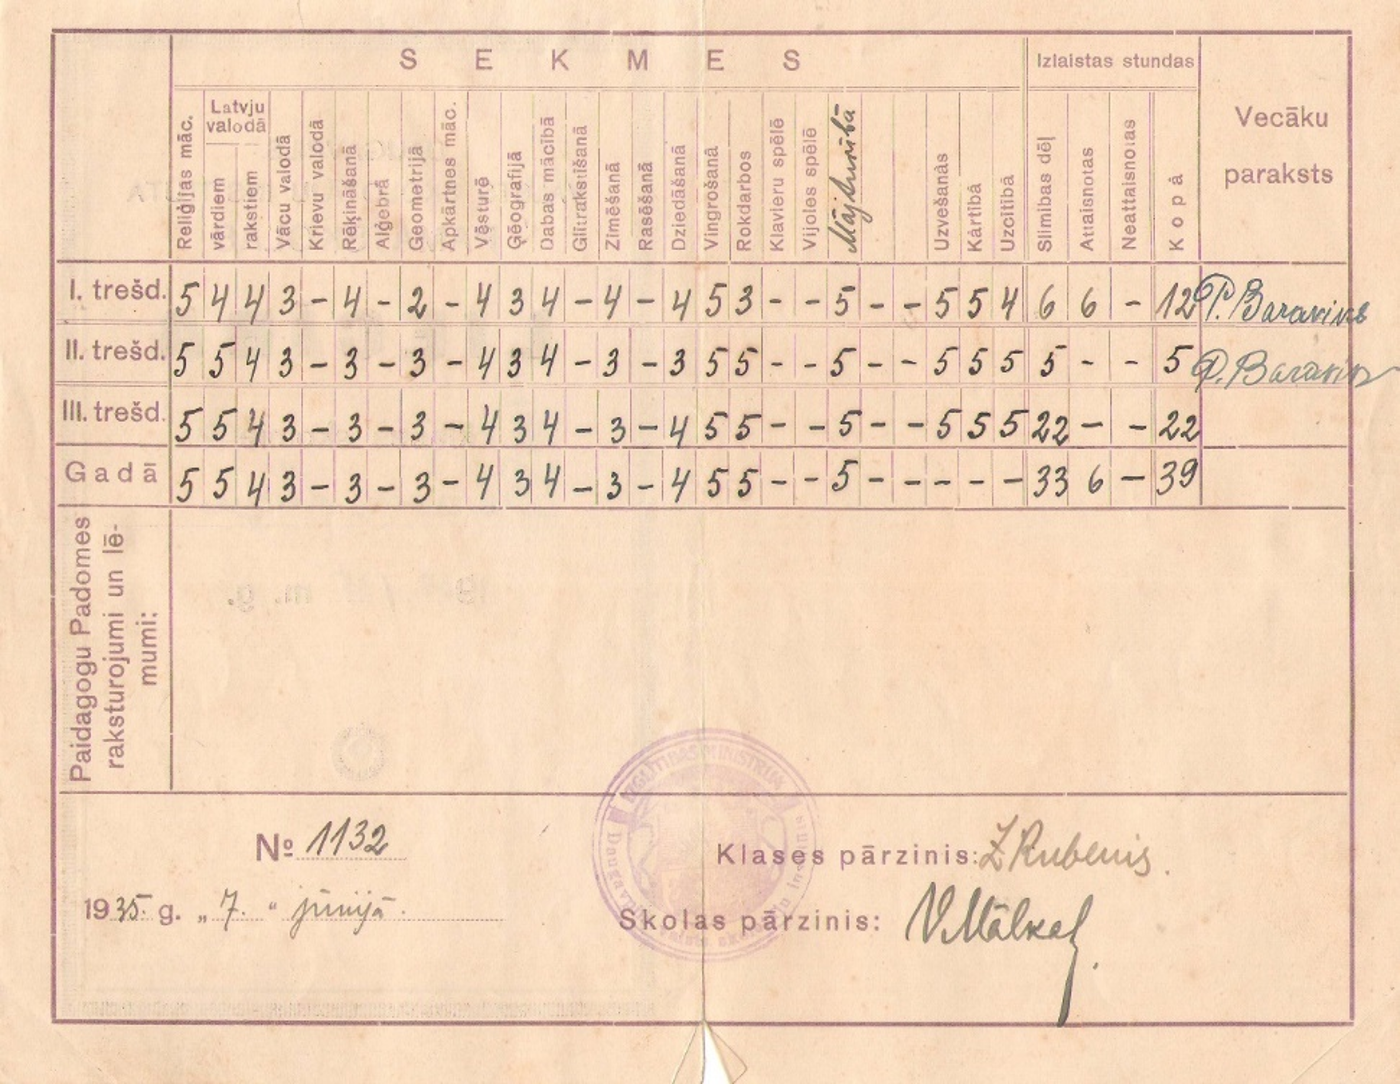 SEKMES Izlaistas stundas Vecāku paraksts
Reliģijas māc.
Latvju valodā
vārdiem
rakstiem
Vācu valodā
Krievu valodā
Rēķināšanā
Alģebrā
Ģeometrijā
Apkārtnes māc.
Vēsturē
Ģeografijā
Dabas mācībā
Glītrakstīšanā
Zīmēšanā
Rasēšanā
Dziedāšanā
Vingrošanā
Rokdarbos
Klavieru spēlē
Vijoles spēlē
Mājturībā
Uzvešanās
Kārtībā
Uzcītībā
Slimības dēļ
Attaisnotas
Neattaisnotas
Kopā
I. trešd. 5 4 4 3 – 4 – 2 – 4 3 4 – 4 – 4 5 3 - - 5 - - 5 5 4 6 6 – 12 P. Baravins
II. trešd. 5 5 4 3 – 3 – 3 – 4 3 4 – 3 – 3 5 5 - - 5 - - 5 5 5 5 - - 5 P. Baravins
III. trešd. 5 5 4 3 – 3 – 3 – 4 3 4 – 3 – 4 5 5 - - 5 - - 5 5 5 22 – – 22
Gadā 5 5 4 3 – 3 – 3 – 4 3 4 – 3 – 4 5 5 - - 5 - - - - - 33 6 – 39
Paidagogu Padomes
raksturojumi un lē-
mumi:
№ 1132
1935. g. „7.“ jūnijā.
Klases pārzinis: Z Rubenis.
Skolas pārzinis:
IZGLĪTĪBAS MINISTRIJA